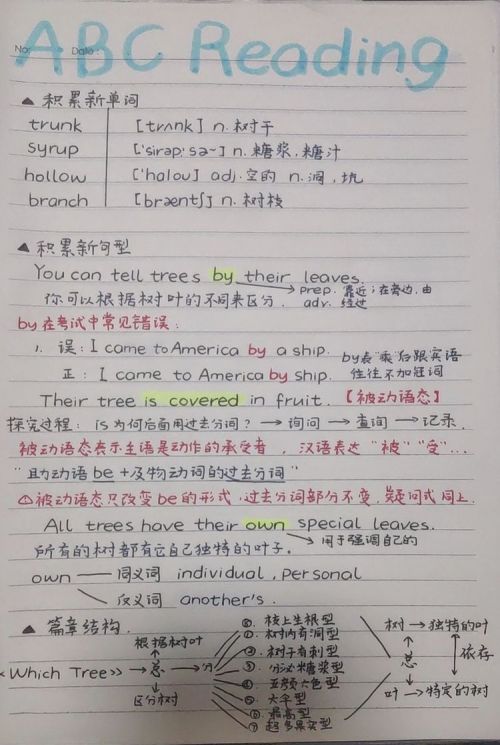 No:
Date:
ABC Reading
▲ 积累新单词
trunk [trʌnk] n. 树干
syrup ['sirəp; sə~] n. 糖浆, 糖汁
hollow ['halou] adj. 空的 n. 洞, 坑
branch [bræntʃ] n. 树枝
▲ 积累新句型
You can tell trees by their leaves.
prep. 靠近; 在旁边, 由
adv. 经过
你可以根据树叶的不同来区分.
by在考试中常见错误:
1. 误: I came to America by a ship.
正: I came to America by ship.
by表"乘"后跟宾语
往往不加冠词
Their tree is covered in fruit. 【被动语态】
探究过程: is为何后面用过去分词? → 询问 → 查询 → 记录.
被动语态表示主语是动作的承受者, 汉语表达"被""受"...
"助动语be+及物动词的过去分词"
①被动语态只改变be的形式, 过去分词部分不变, 疑问式同上.
All trees have their own special leaves.
→ 用于强调自己的
所有的树都有它自己独特的叶子.
own — 同义词 individual, personal
反义词 another's.
▲ 篇章结构.
《Which Tree》→ 总 → 分
根据树叶
区分树
枝上生根型
① 树内有洞型
② 树子有刺型
③ 分泌糖浆型
④ 五颜六色型
⑤ 大伞型
⑥ 最高型
⑦ 超多果实型
总
树 → 独特的叶
依存
叶 → 特定的树